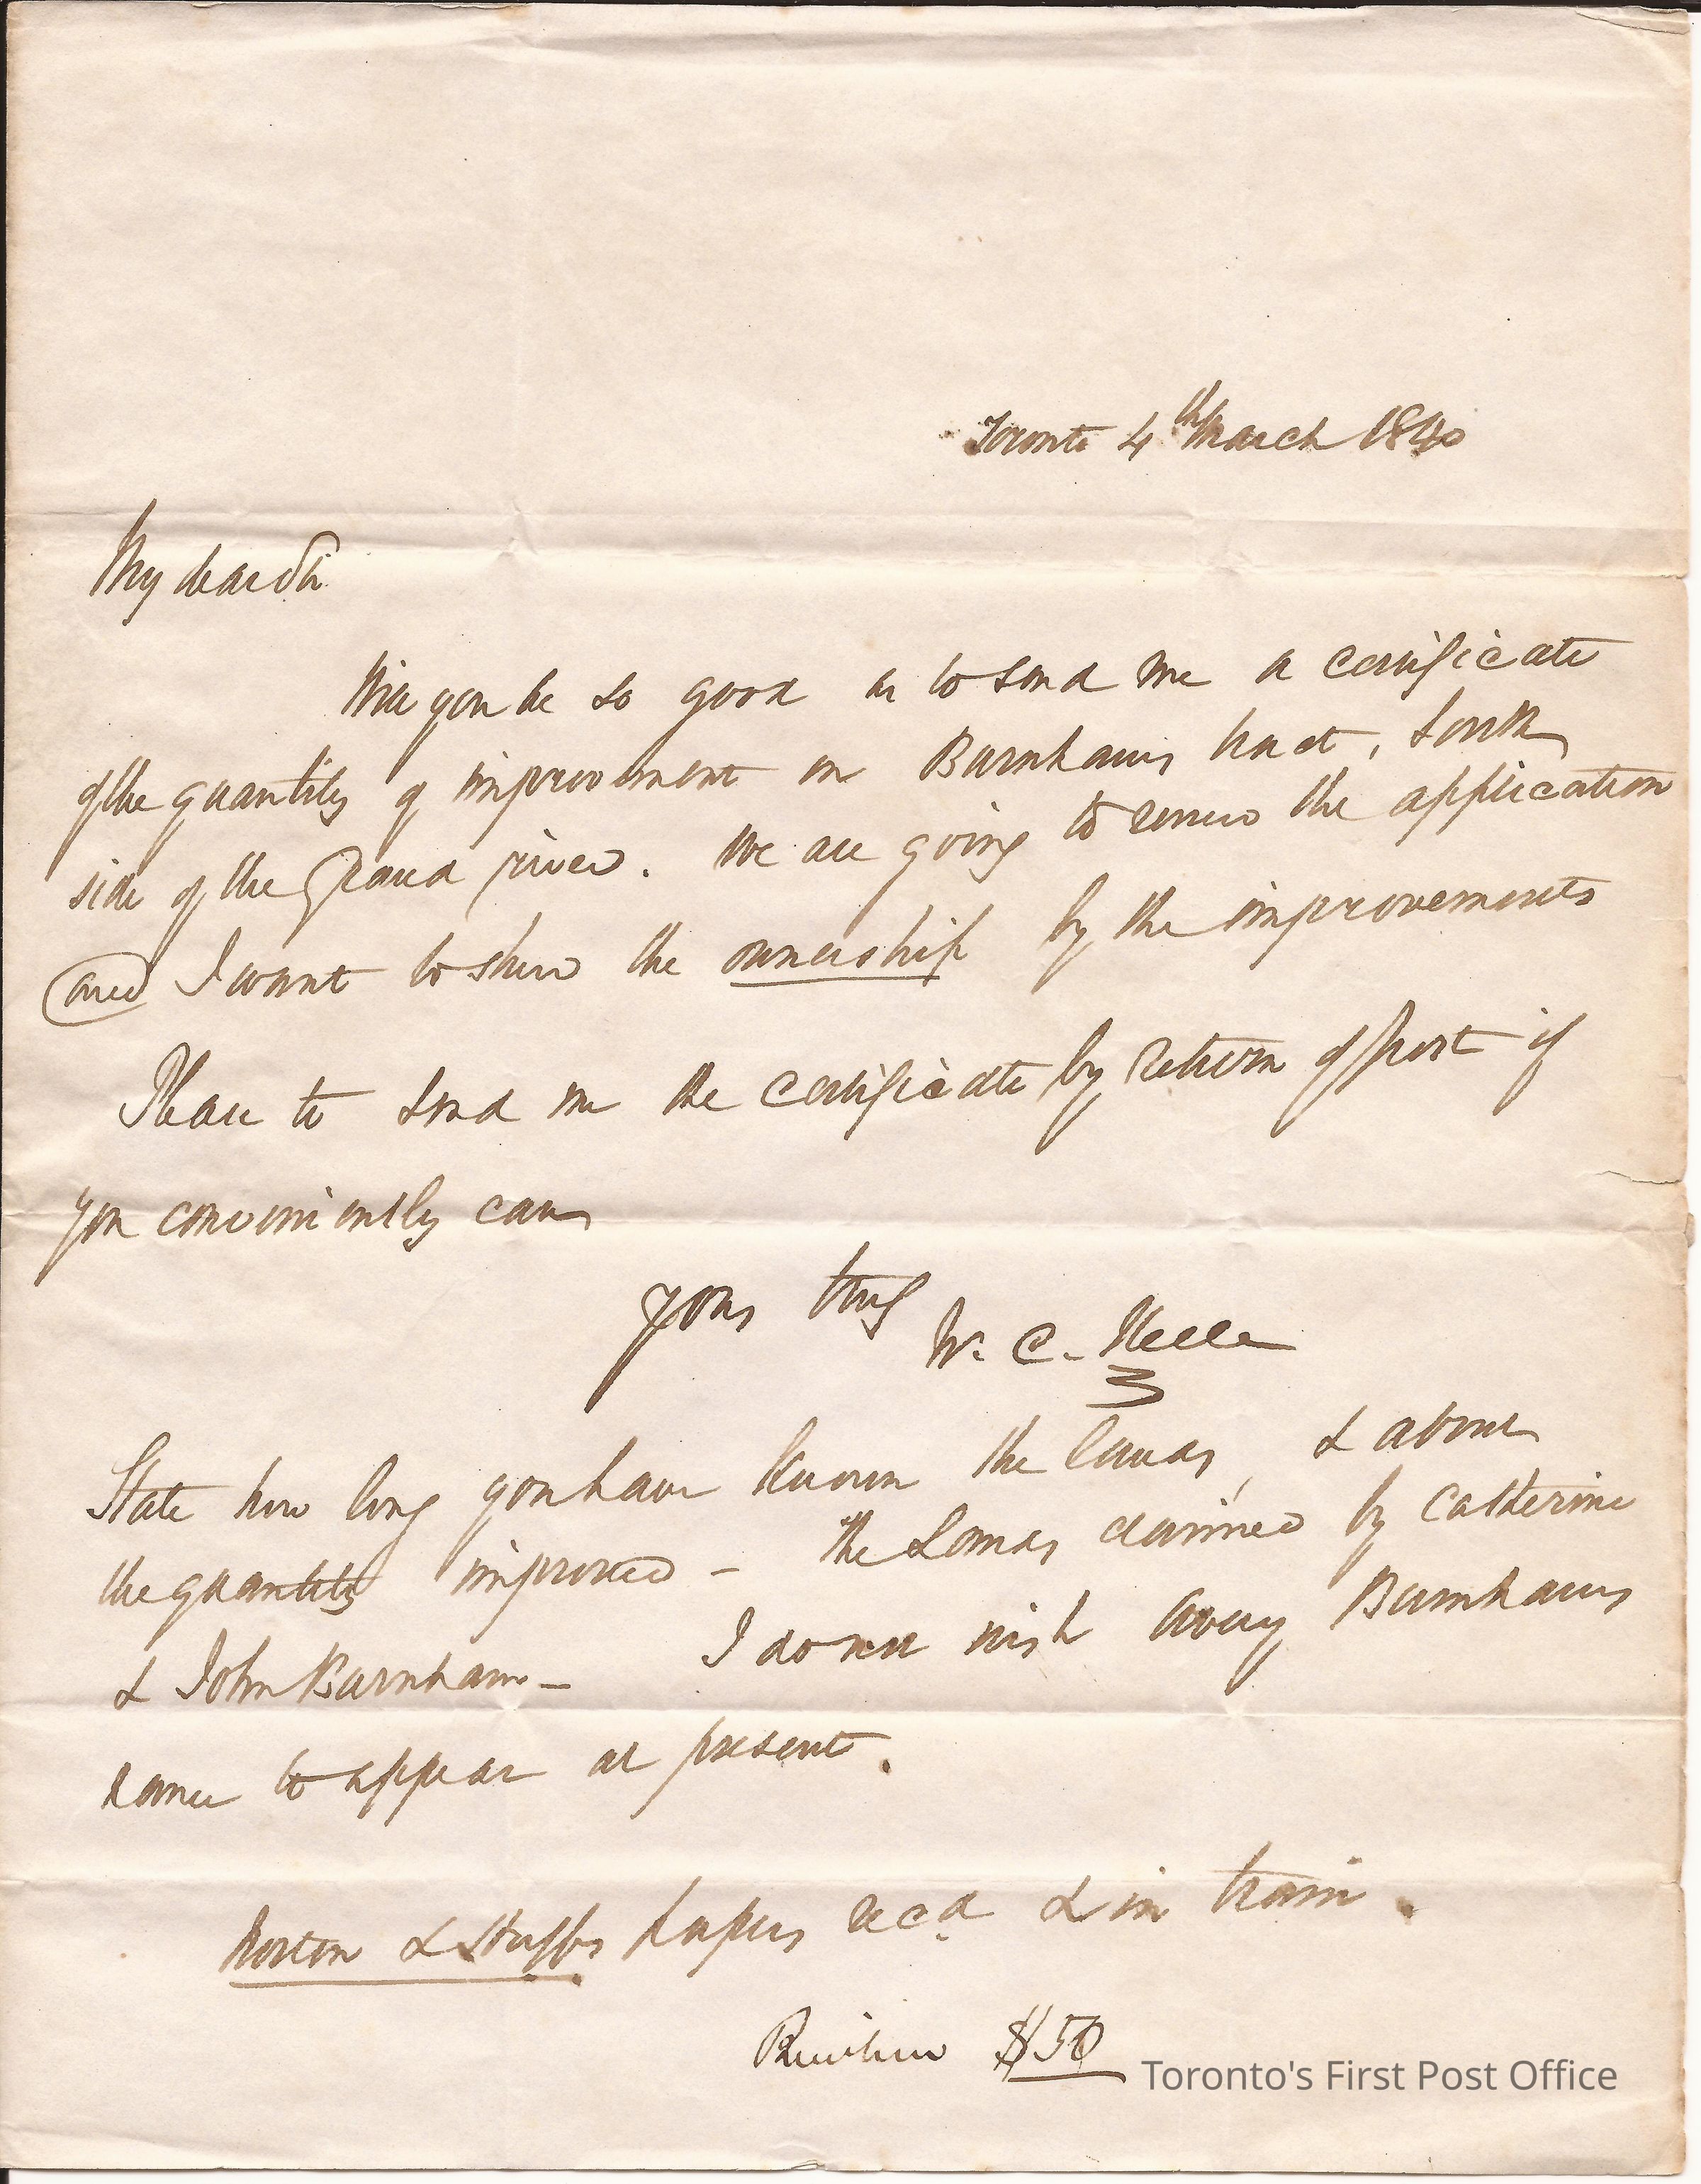 Toronto 4th March 1840
My dear Sir
Will you be so good as to send me a certificate
of the quantity of improvement on Burnhams tract, South
side of the Grand river. We are going to renew the application
and I want to shew the ownership by the improvements
Please to send me the certificate by return of post if
you conveniently can
yours truly
W. C. Keele
State how long you have known the lands, & about
the quantity improved - the Lands claimed by Catherine
& John Burnham - I do not wish Burnhams
name to appear at present.
Norton & papers recd & in train.
$50
Toronto's First Post Office